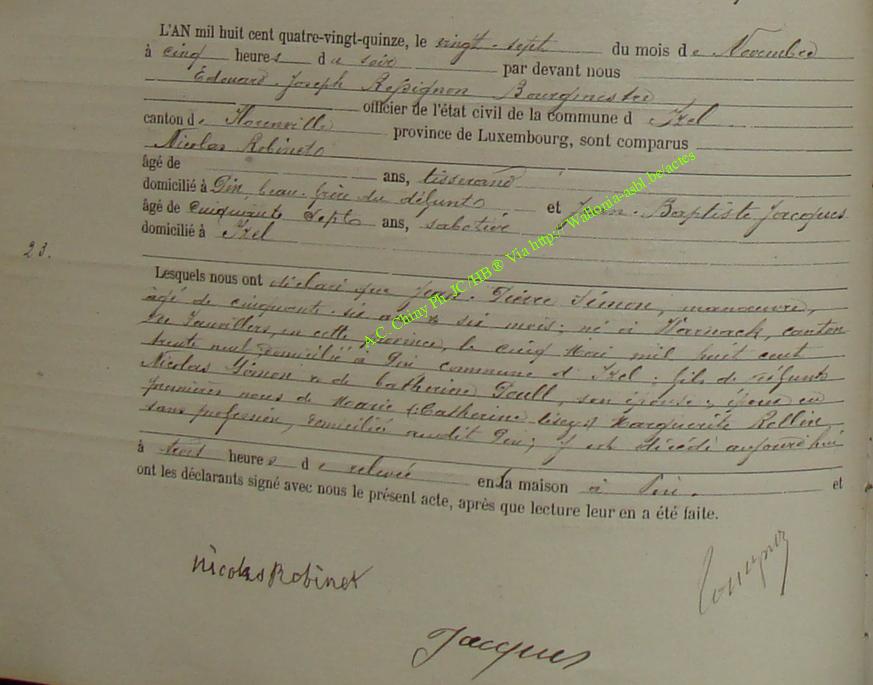 L'AN mil huit cent quatre-vingt-quinze, le vingt-sept du mois de Novembre
à cinq heures du soir par devant nous
Edouard Joseph Rossignon Bourgmestre
officier de l'état civil de la commune d Izel
canton de Florenville province de Luxembourg, sont comparus
Nicolas Robinet
âgé de ans, tisserand
domicilié à Pin, beau-frère du défunt et Jean-Baptiste Jacques
âgé de cinquante sept ans, sabotier
domicilié à Izel
23.
Lesquels nous ont déclaré que Jean-Pierre Simon, manoeuvre,
âgé de cinquante-six ans & six mois; né à Warnach, canton
de Fauvillers, en cette province, le cinq Mai mil huit cent
trente neuf, domicilié à Pin commune d Izel; fils de défunts
Nicolas Simon & de Catherine Doull, son épouse; époux en
premières noces de Marie (:Catherine lisez:) Marguerite Rollin
sans profession, domiciliée audit Pin; y est décédé aujourd'hui
à trois heures de relevée en la maison à Pin. et
ont les déclarants signé avec nous le présent acte, après que lecture leur en a été faite.
Nicolas Robinet
Jacques
A.C. Chiny Ph. JC/HB ® Via http:// Wallonia-asbl.be/actes